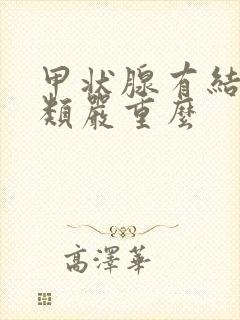 甲状腺有結
類嚴重麼
高澤華